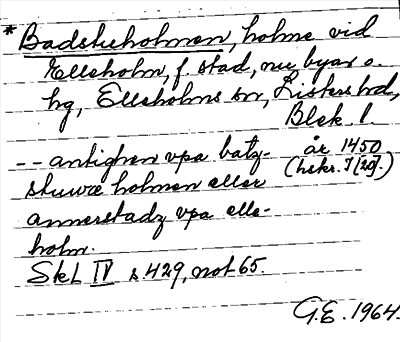 * Badstuholmen, holme vid
Elleholm, f. stad, nu byar o.
hg, Elleholms sn, Listers hd,
Blek. l
-- antighen vpa batz-
år 1450
stuwæ holmen eller
(hskr. I [20].)
annerstadz vpa elle-
holm.
SkL IV s 429, not 65.
G.E. 1964.